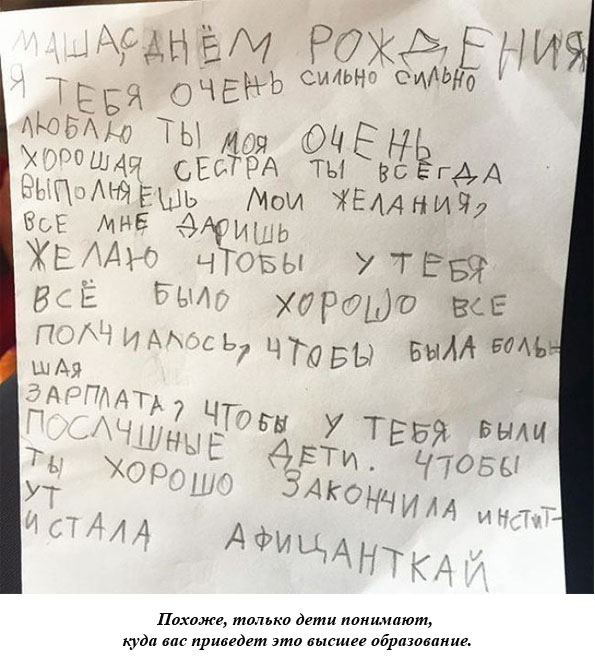 МАША,С ДНЁМ РОЖДЕНИЯ
Я ТЕБЯ ОЧЕНЬ СИЛЬНО СИЛЬНО
ЛЮБЛЮ ТЫ МОЯ ОЧЕНЬ
ХОРОШАЯ СЕСТРА ТЫ ВСЕГДА
ВЫПОЛНЯЕШЬ МОИ ЖЕЛАНИЯ,
ВСЕ МНЕ ДАРИШЬ
ЖЕЛАЮ ЧТОБЫ У ТЕБЯ
ВСЁ БЫЛО ХОРОШО ВСЕ
ПОЛЧИАЛОСЬ, ЧТОБЫ БЫЛА БОЛЬ-
ШАЯ
ЗАРПЛАТА, ЧТОБЫ У ТЕБЯ БЫЛИ
ПОСЛУШНЫЕ ДЕТИ. ЧТОБЫ
ТЫ ХОРОШО ЗАКОНЧИЛА ИНСТИТ-
УТ
И СТАЛА АФИЦАНТКАЙ
Похоже, только дети понимают,
куда вас приведет это высшее образование.